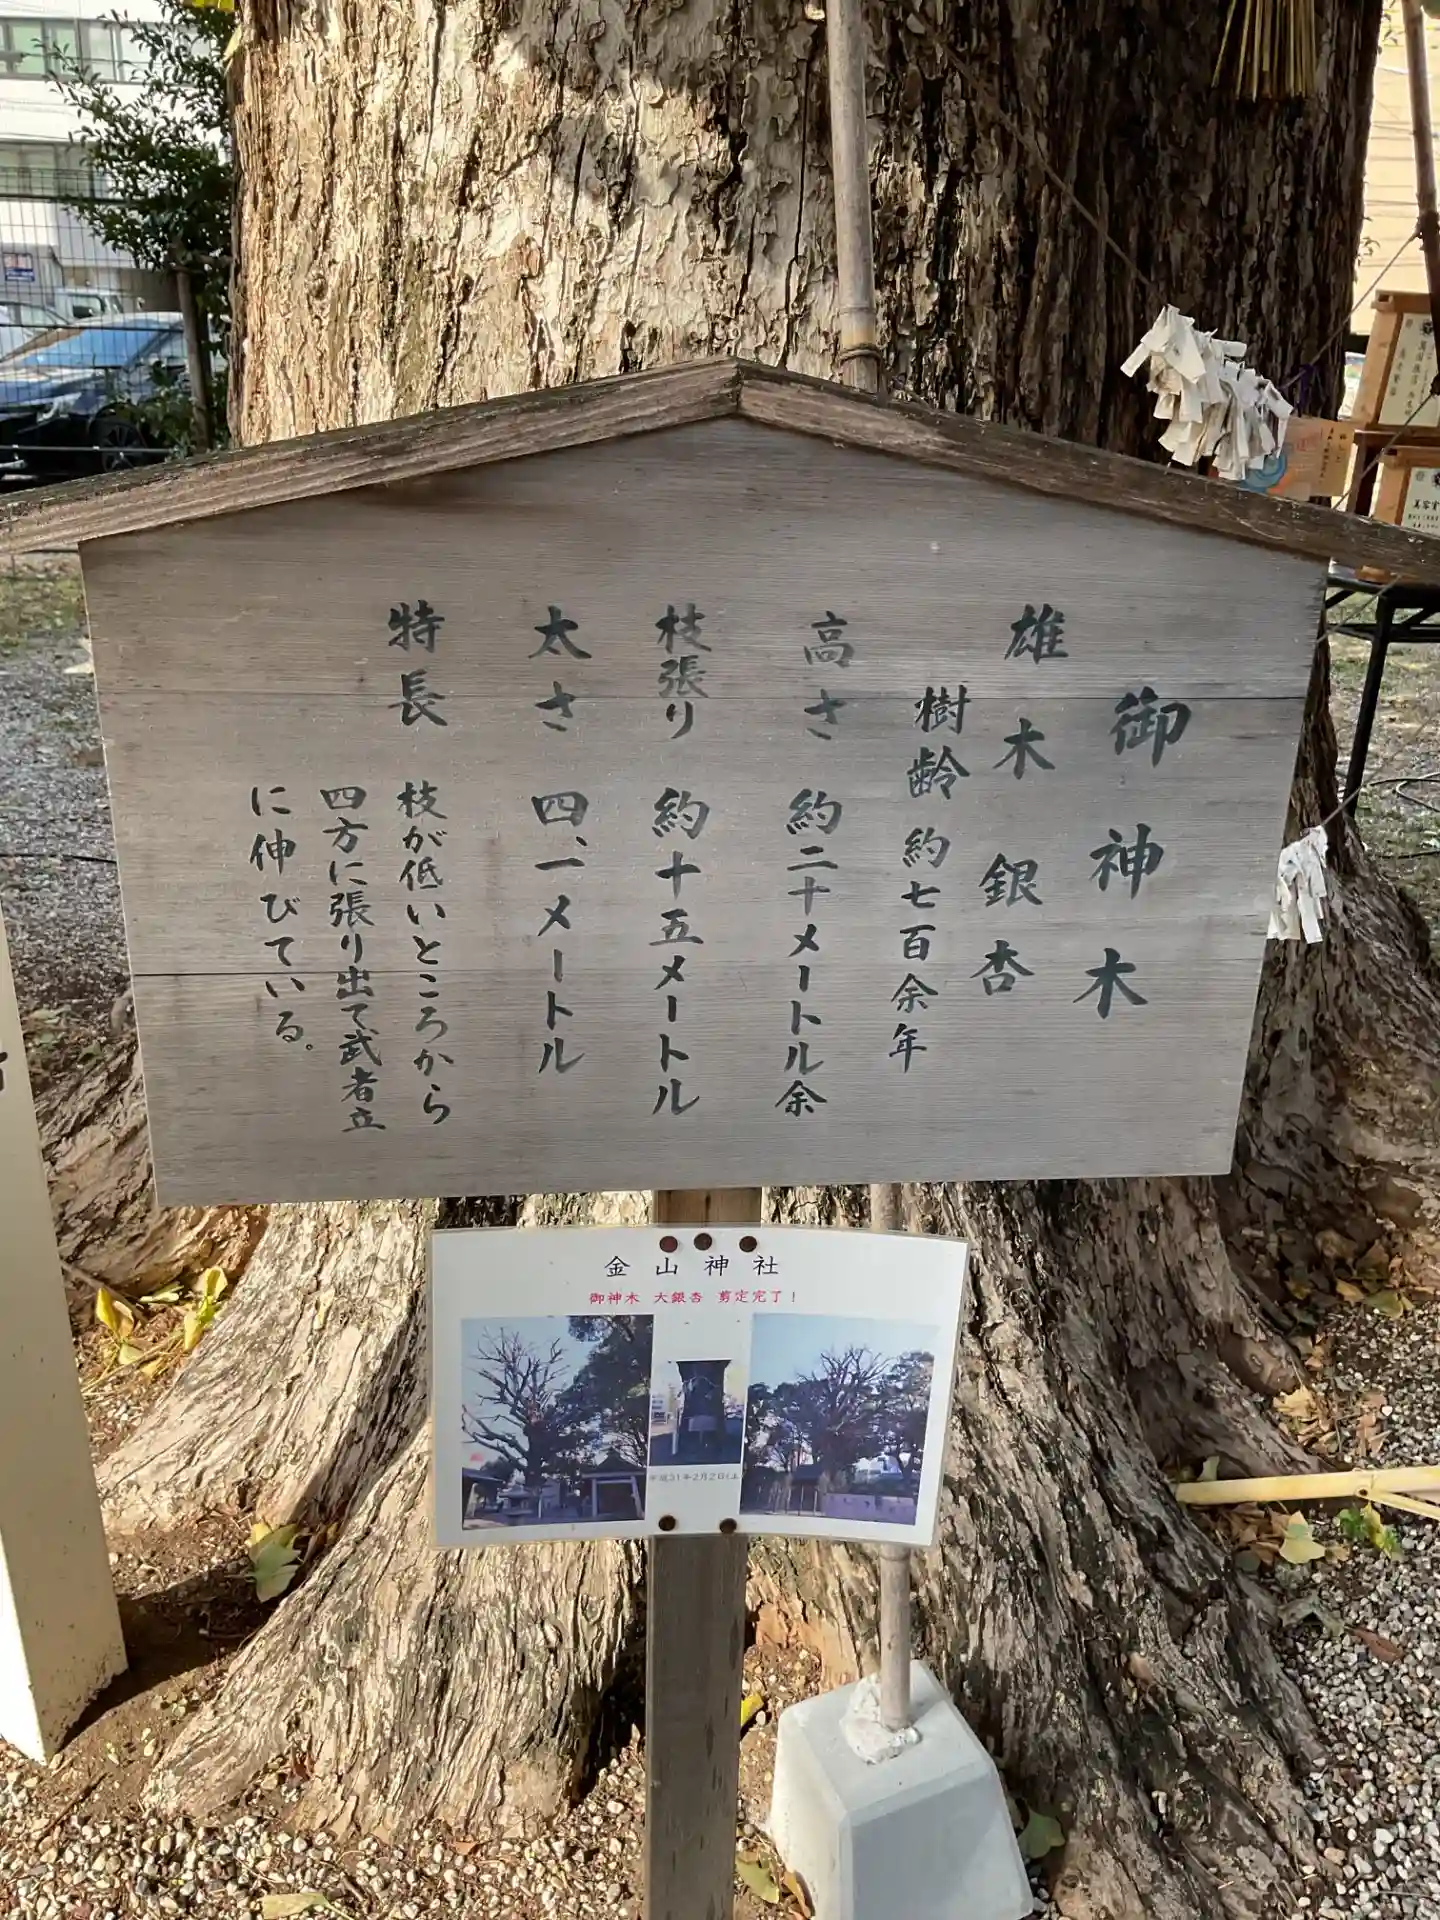 御神木
雄木 銀杏
樹齢 約七百余年
高さ 約二十メートル余
枝張り 約十五メートル
太さ 四、一メートル
特長 枝が低いところから
四方に張り出て武者立
に伸びている。
金山神社
御神木 大銀杏 剪定完了！
平成31年2月2日(土